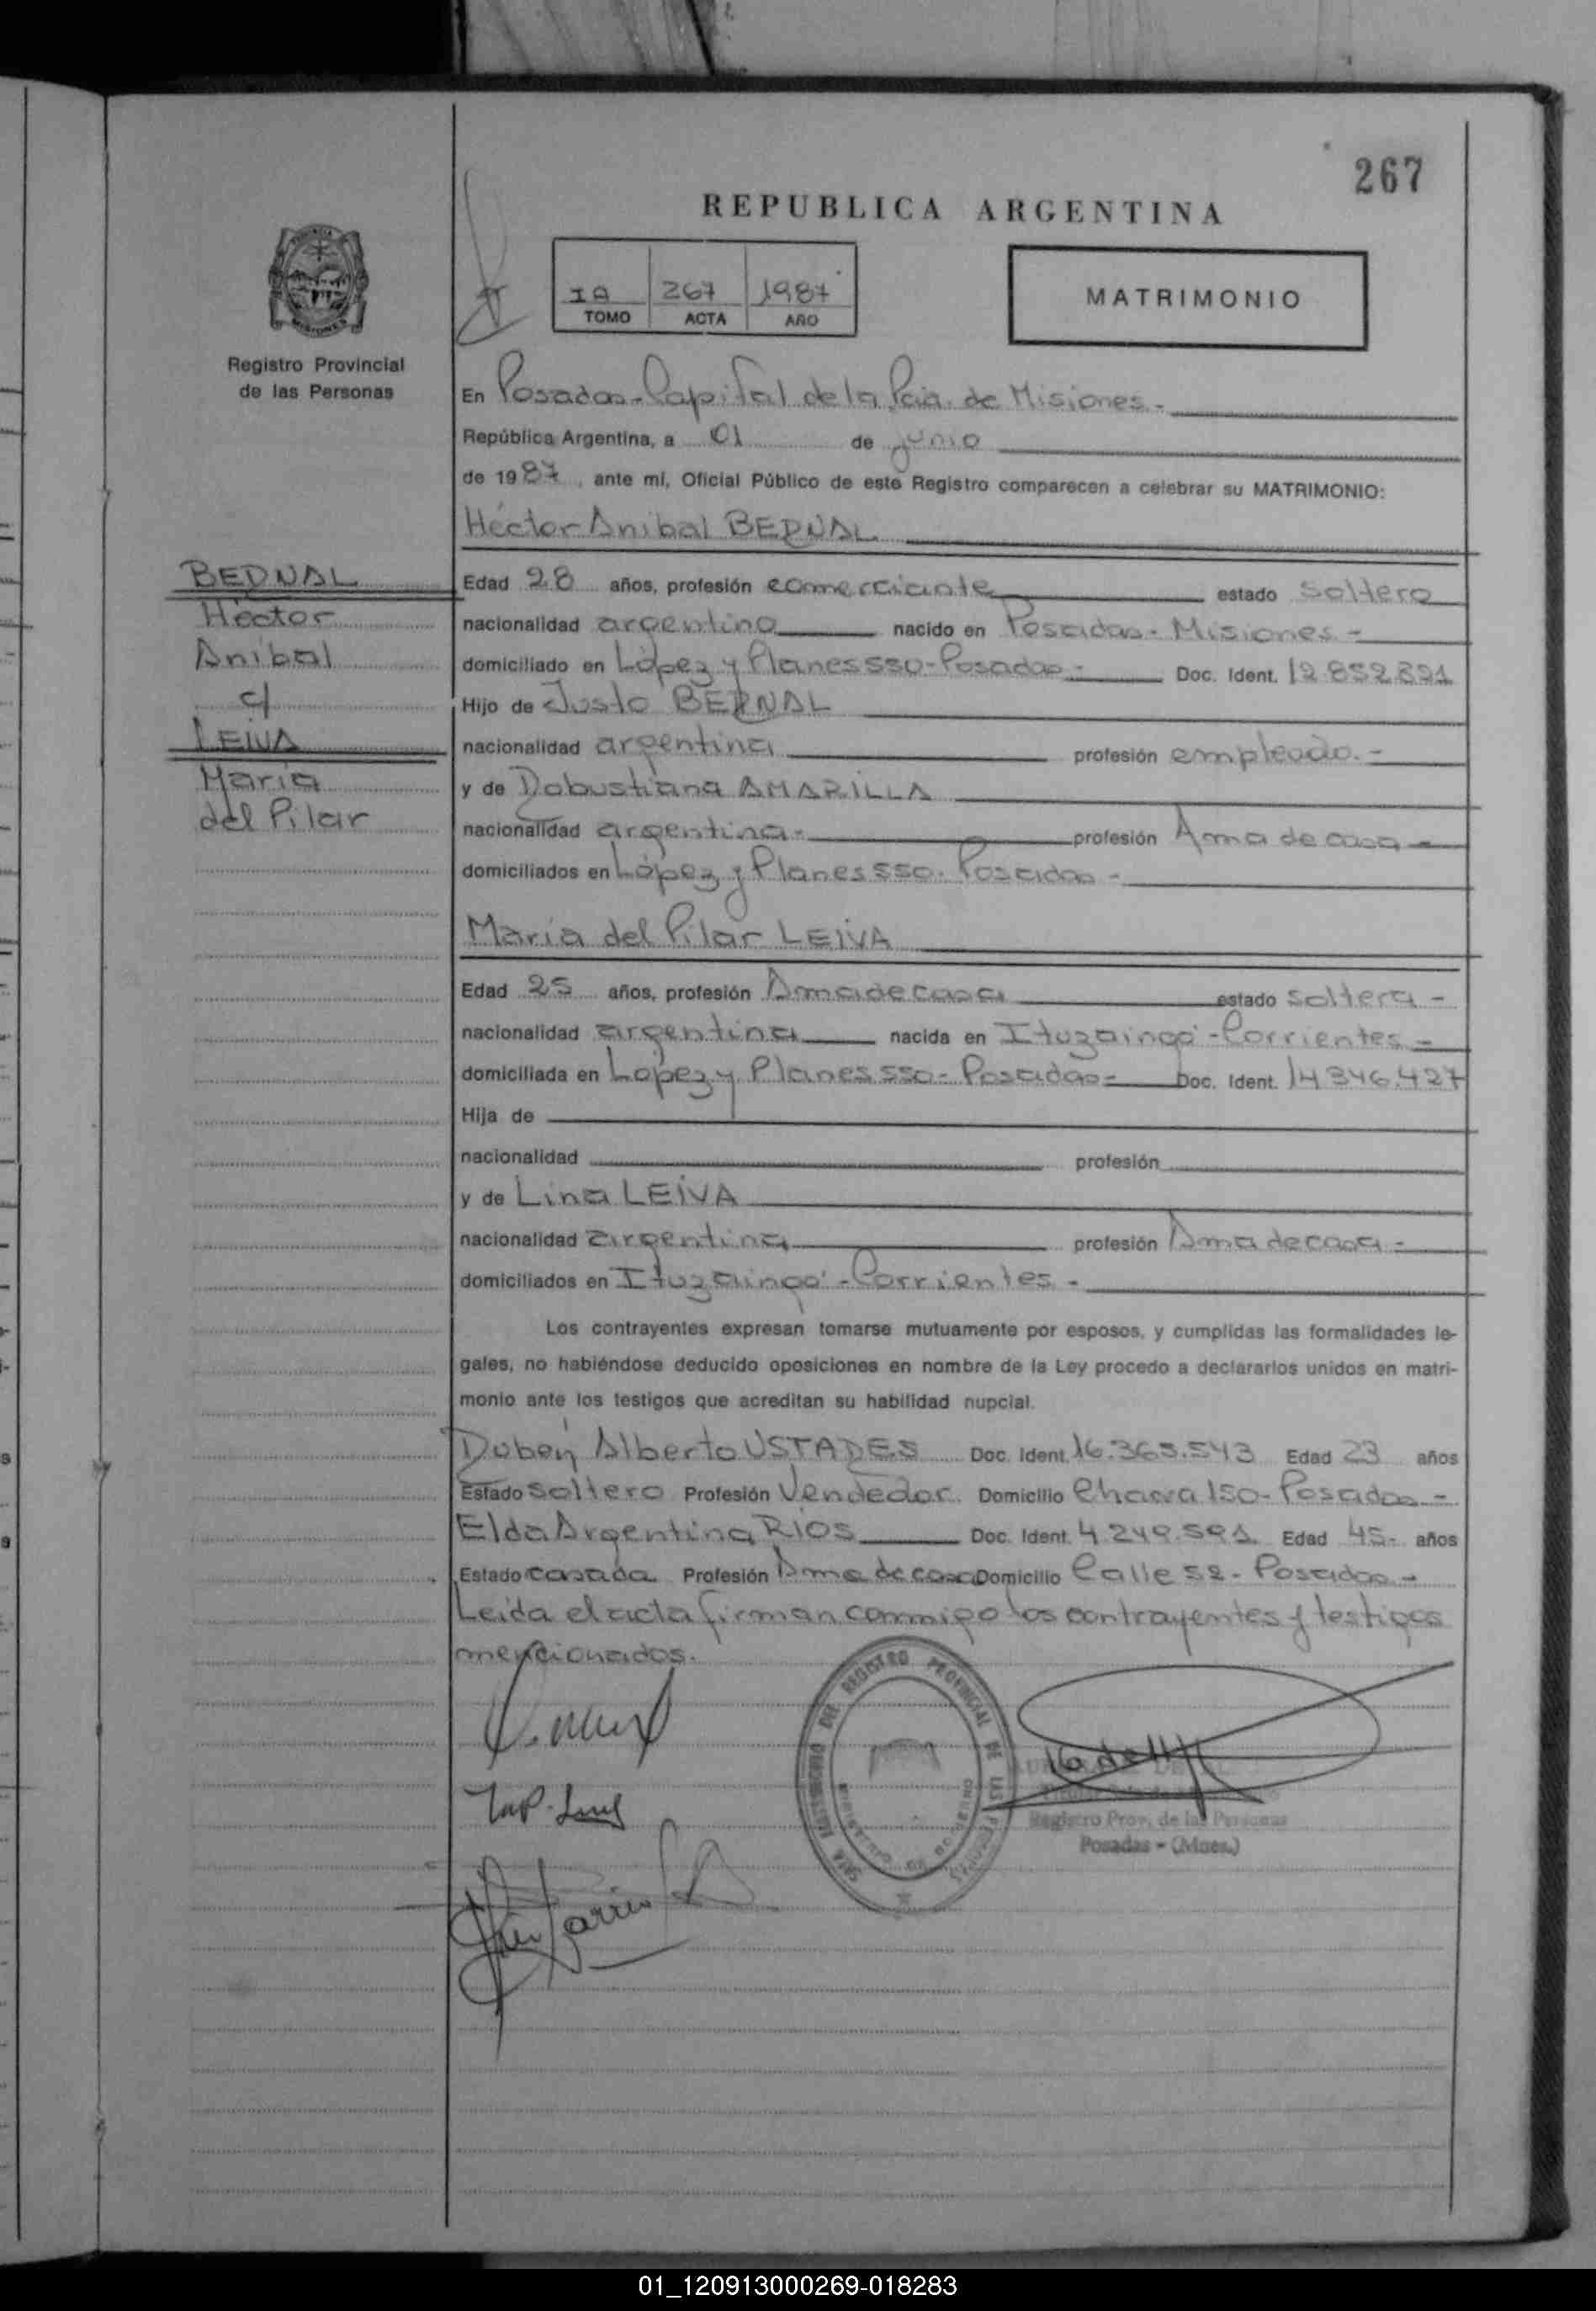 267
REPUBLICA ARGENTINA
1A 267 1987
TOMO ACTA AÑO
MATRIMONIO
Registro Provincial
de las Personas
En Posadas-Capital de la Pcia. de Misiones-
República Argentina, a 01 de junio
de 1987, ante mí, Oficial Público de este Registro comparecen a celebrar su MATRIMONIO:
Héctor Anibal BERNAL
BERNAL
Héctor
Anibal
c/
LEIVA
María
del Pilar
Edad 28 años, profesión comerciante estado soltero
nacionalidad argentino nacido en Posadas-Misiones-
domiciliado en López y Planes 550-Posadas- Doc. Ident. 12.852.821
Hijo de Justo BERNAL
nacionalidad argentina profesión empleado.-
y de Robustiana AMARILLA
nacionalidad argentina- profesión Ama de casa-
domiciliados en López y Planes 550. Posadas-
María del Pilar LEIVA
Edad 25 años, profesión Ama de casa estado soltera-
nacionalidad argentina nacida en Ituzaingó-Corrientes-
domiciliada en López y Planes 550-Posadas- Doc. Ident. 14.346.427
Hija de
nacionalidad profesión
y de Lina LEIVA
nacionalidad argentina profesión Ama de casa-
domiciliados en Ituzaingó-Corrientes-
Los contrayentes expresan tomarse mutuamente por esposos, y cumplidas las formalidades le-
gales, no habiéndose deducido oposiciones en nombre de la Ley procedo a declararlos unidos en matri-
monio ante los testigos que acreditan su habilidad nupcial.
Rubén Alberto USTARES Doc. Ident. 16.365.543 Edad 23 años
Estado soltero Profesión Vendedor. Domicilio Chacra 150-Posadas-
Elda Argentina RIOS Doc. Ident. 4.249.591 Edad 45- años
Estado casada Profesión Ama de casa Domicilio Calle 52-Posadas-
Leída el acta firman conmigo los contrayentes y testigos
mencionados.
REGISTRO PROVINCIAL DE LAS PERSONAS
Registro Prov. de las Personas
Posadas - (Mnes.)
01_120913000269-018283